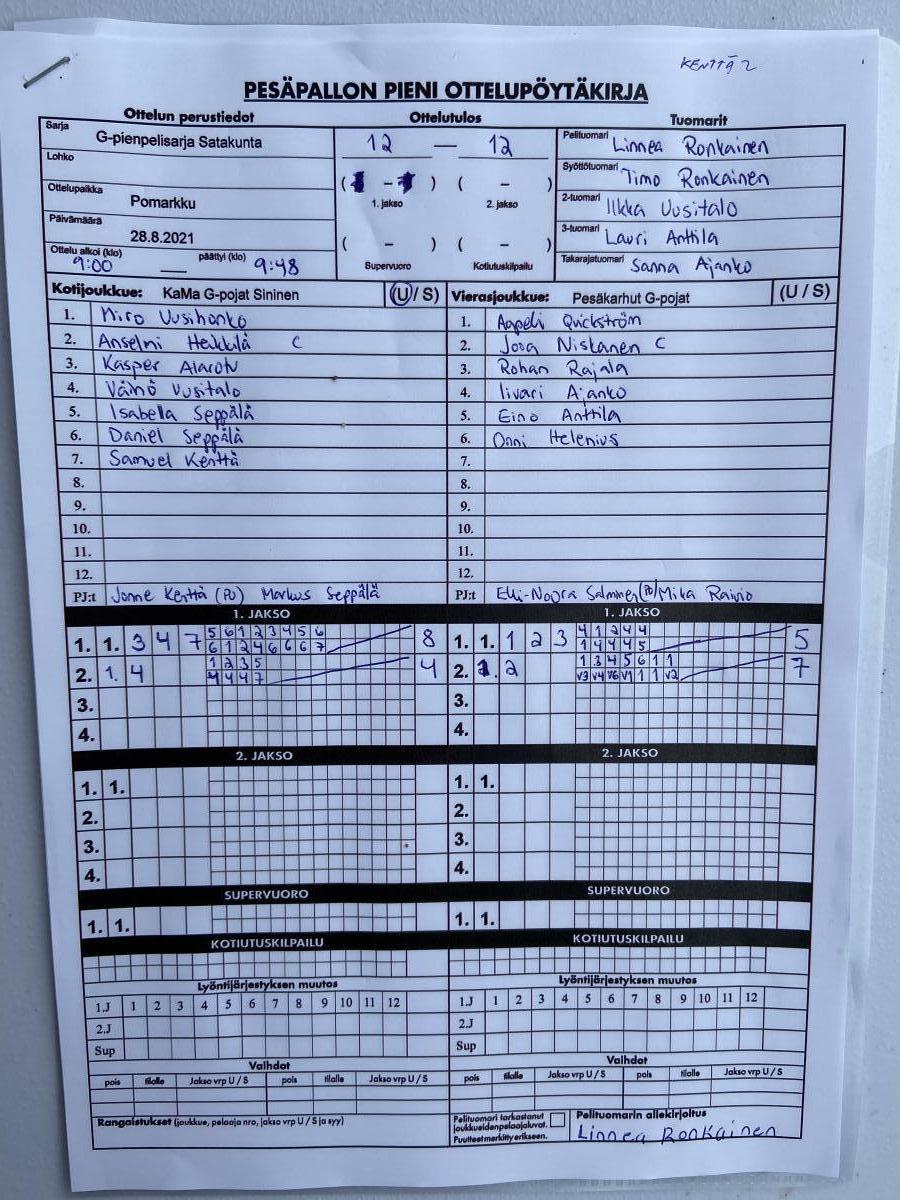 KENTTÄ 2
PESÄPALLON PIENI OTTELUPÖYTÄKIRJA
Ottelun perustiedot Ottelutulos Tuomarit
Sarja G-pienpelisarja Satakunta
Lohko
Ottelupaikka Pomarkku
Päivämäärä 28.8.2021
Ottelu alkoi (klo) 9:00 — päättyi (klo) 9:48
12 — 12
( - ) ( - )
1. jakso 2. jakso
( - ) ( - )
Supervuoro Kotiutuskilpailu
Pelituomari Linnea Ronkainen
Syöttötuomari Timo Ronkainen
2-tuomari Ilkka Uusitalo
3-tuomari Lauri Anttila
Takarajatuomari Sanna Ajanko
Kotijoukkue: KaMa G-pojat Sininen (U / S)
1. Miro Uusihonko
2. Anselmi Heikkilä C
3. Kasper Alarotu
4. Väinö Uusitalo
5. Isabella Seppälä
6. Daniel Seppälä
7. Samuel Kenttä
8.
9.
10.
11.
12.
PJ:t Jonne Kenttä (PJ) Markus Seppälä
Vierasjoukkue: Pesäkarhut G-pojat (U / S)
1. Aapeli Quickström
2. Jooa Niskanen C
3. Rohan Rajala
4. Iivari Ajanko
5. Eino Anttila
6. Onni Helenius
7.
8.
9.
10.
11.
12.
PJ:t Elli-Noora Salminen (PJ) Mika Rainio
1. JAKSO 1. JAKSO
5 6 1 2 3 4 5 6 4 1 2 4 4
1. 1. 3 4 7 8 1. 1. 1 2 3 5
6 1 2 4 6 6 6 7 1 4 4 4 5
1 2 3 5 1 3 4 5 6 1 1
2. 1. 4 4 2. 2 7
4 4 4 7 V3 V4 V6 V1 1 1 V2
3. 3.
4. 4.
2. JAKSO 2. JAKSO
1. 1. 1. 1.
2. 2.
3. 3.
4. 4.
SUPERVUORO SUPERVUORO
1. 1. 1. 1.
KOTIUTUSKILPAILU KOTIUTUSKILPAILU
Lyöntijärjestyksen muutos Lyöntijärjestyksen muutos
1.J 1 2 3 4 5 6 7 8 9 10 11 12 1.J 1 2 3 4 5 6 7 8 9 10 11 12
2.J 2.J
Sup Sup
Vaihdot Vaihdot
pois tilalle Jakso vrp U / S pois tilalle Jakso vrp U / S pois tilalle Jakso vrp U / S pois tilalle Jakso vrp U / S
Rangaistukset (joukkue, pelaaja nro, jakso vrp U / S ja syy)
Pelituomari tarkastanut
joukkueidenpelaajaluvat.
Puutteet merkitty erikseen.
Pelituomarin allekirjoitus
Linnea Ronkainen